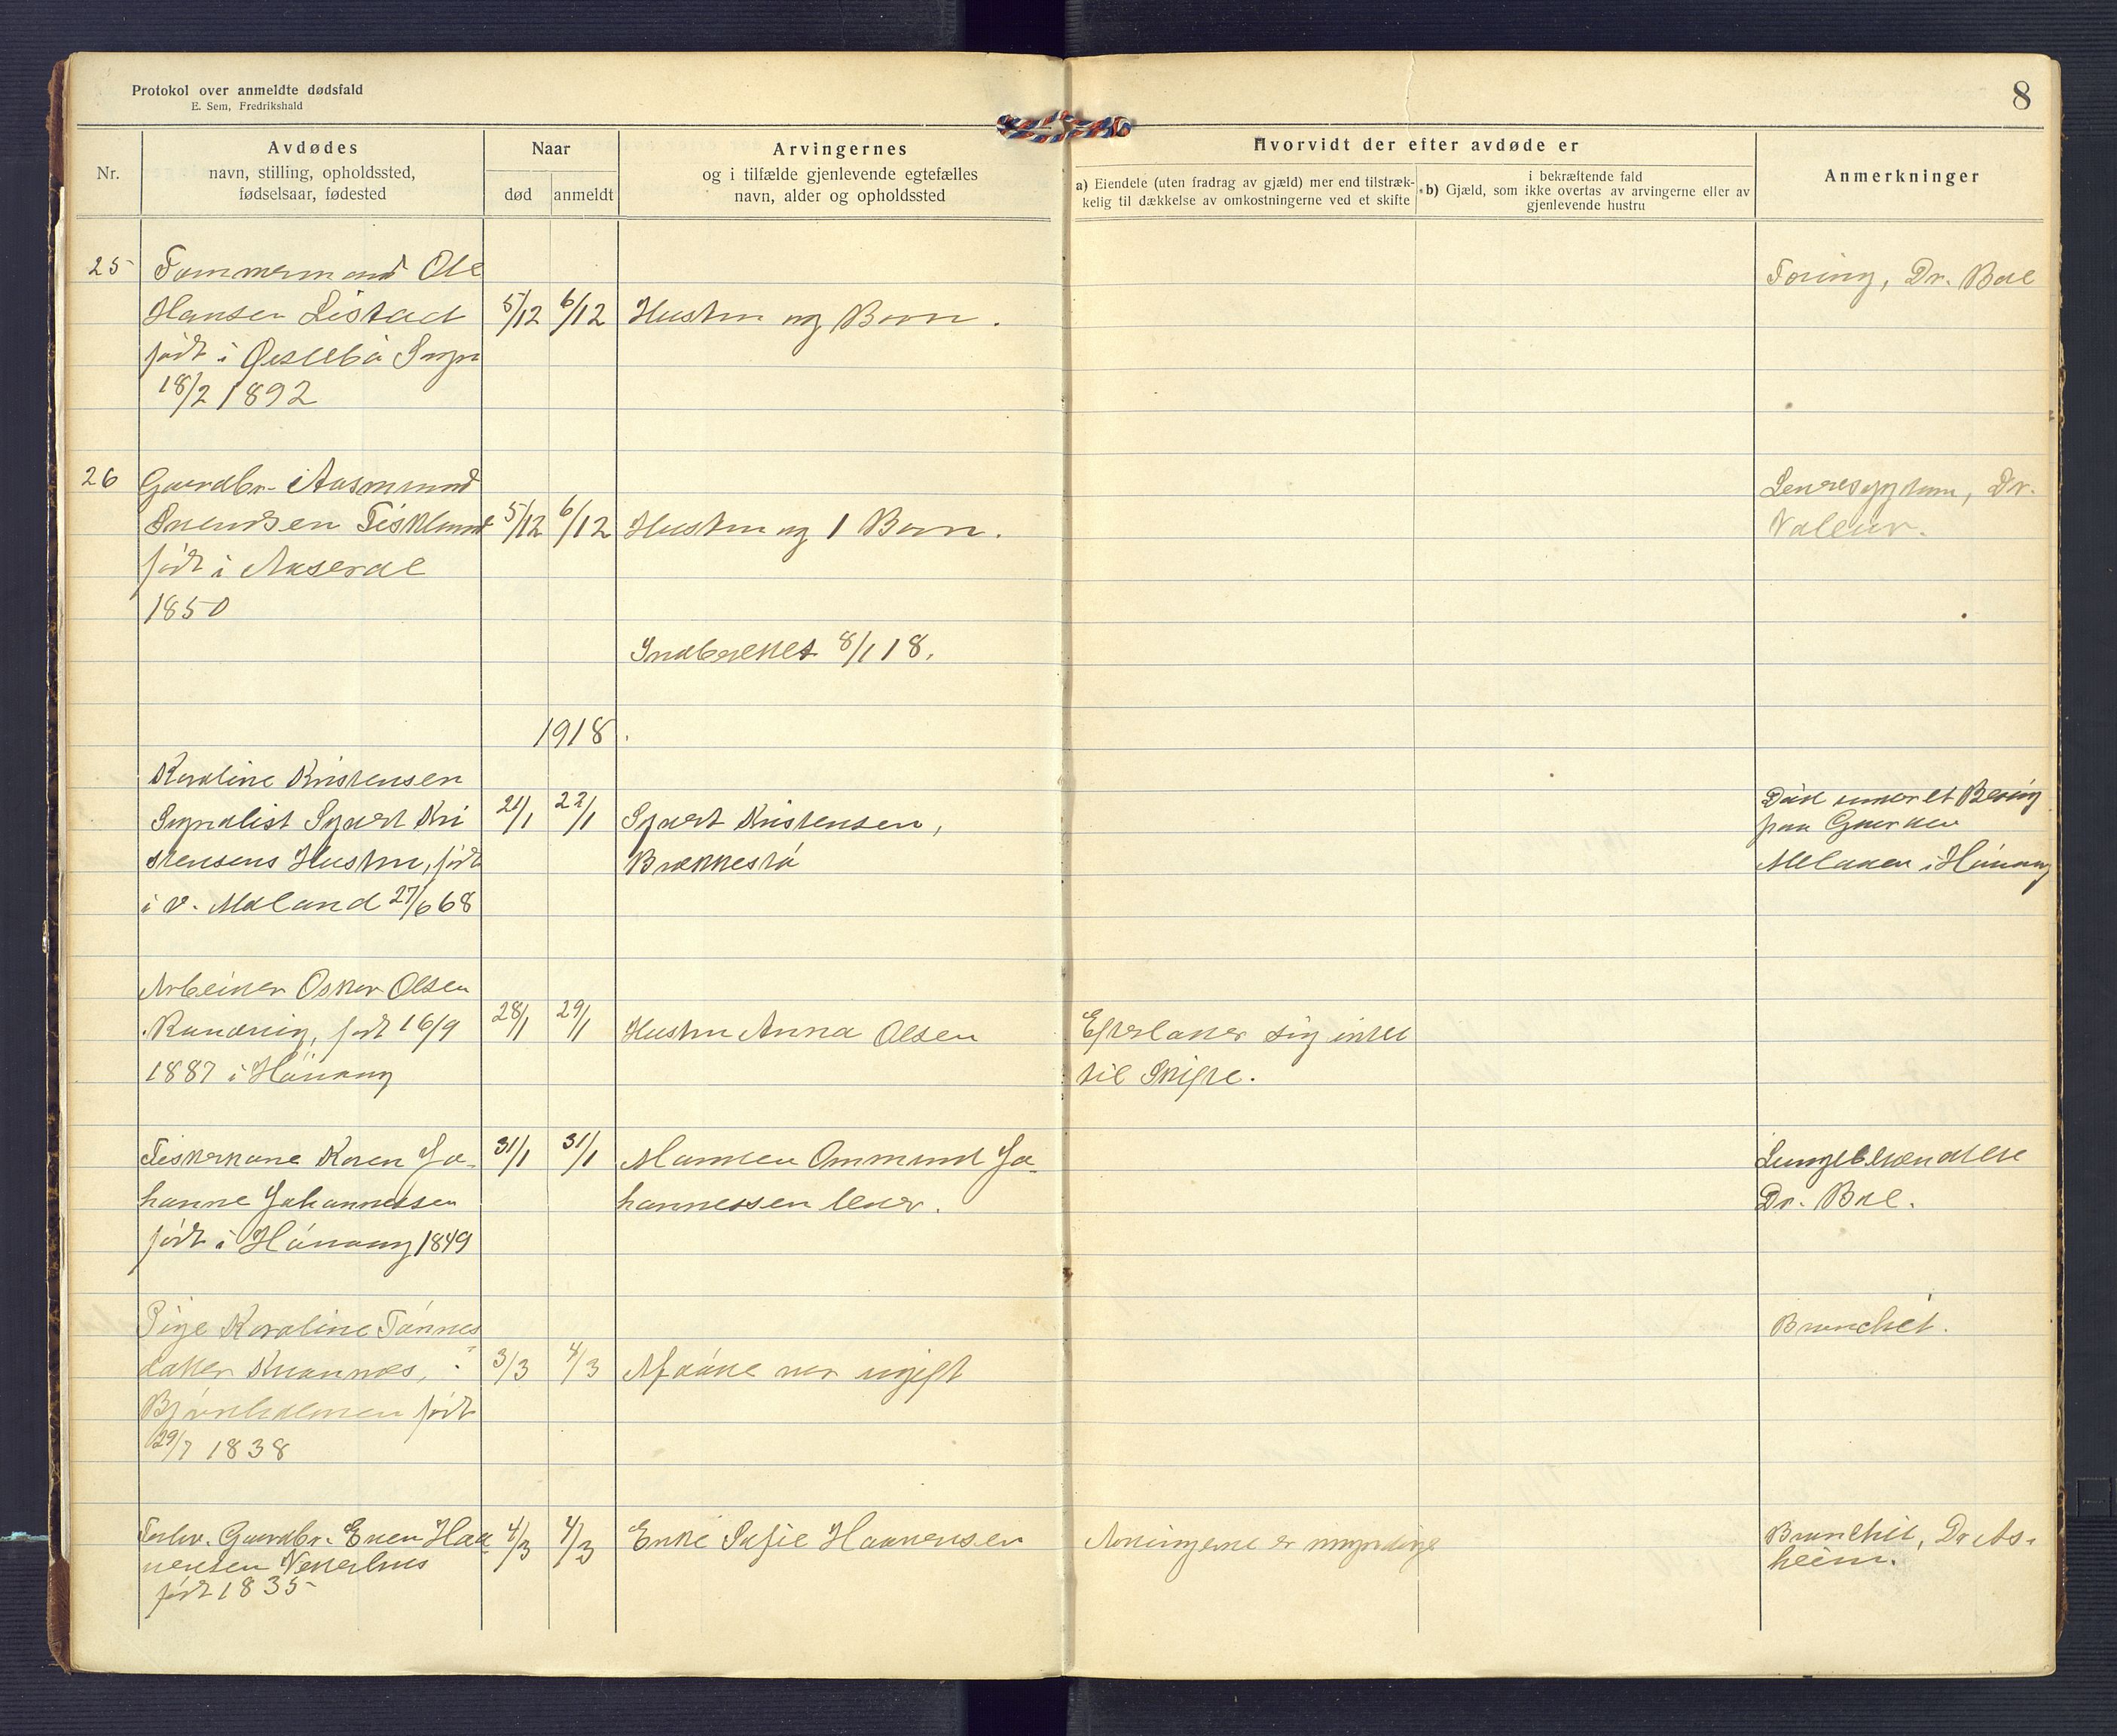 Protokol over anmeldte dødsfald
E. Sem, Fredrikshald
8
Nr.
Avdødes
navn, stilling, opholdssted,
fødselsaar, fødested
Naar
død
anmeldt
Arvingernes
og i tilfælde gjenlevende egtefælles
navn, alder og opholdssted
Hvorvidt der efter avdøde er
a) Eiendele (uten fradrag av gjæld) mer end tilstræk-
kelig til dækkelse av omkostningerne ved et skifte
i bekræftende fald
b) Gjæld, som ikke overtas av arvingerne eller av
gjenlevende hustru
Anmerkninger
25 Tømmermand Ole
Tæring, Dr. Boe
Hansen Listad 5/12 6/12 Hustru og Børn.
født i Øislebø Sogn
18/2 1892
26 Gaardbr. Aasmund
Dr.
Svendsen Fiskland 5/12 6/12 Hustru og 1 Barn.
Valeur.
født i Aaseral
1850
Indberettet 8/1 18.
1918.
Karoline Kristensen
Død under et Besøg
Sjørt Kri 21/1 22/1 Sjørt Kristensen,
paa Gaarden
stensens Hustru, født
Brekkestø
i Hövaag
i V. Moland 27/6 68
Arbeider Oskar Olsen
født 16/9 28/1 29/1 Hustru Anna Olsen
Efterlader sig intet
1887 i Hövaag
til Skifte.
Fiskerkone Karen Jo- 31/1 31/1 Manden Ommund Jo-
Lungebetændelse
hanne Johannessen
hannessen lever.
Dr. Boe.
født i Hövaag 1849
Pige Karoline Tönnes
Bronchit.
datter Kvannes, 3/3 4/3 Afdöde var ugift
født
29/7 1838
Forhv. Gaardbr. Even Haa 4/3 4/3 Enke Sofie Haavensen
Arvingerne er myndige
Bronchit, Dr. As-
vensen Vesterhus
heim.
født 1835